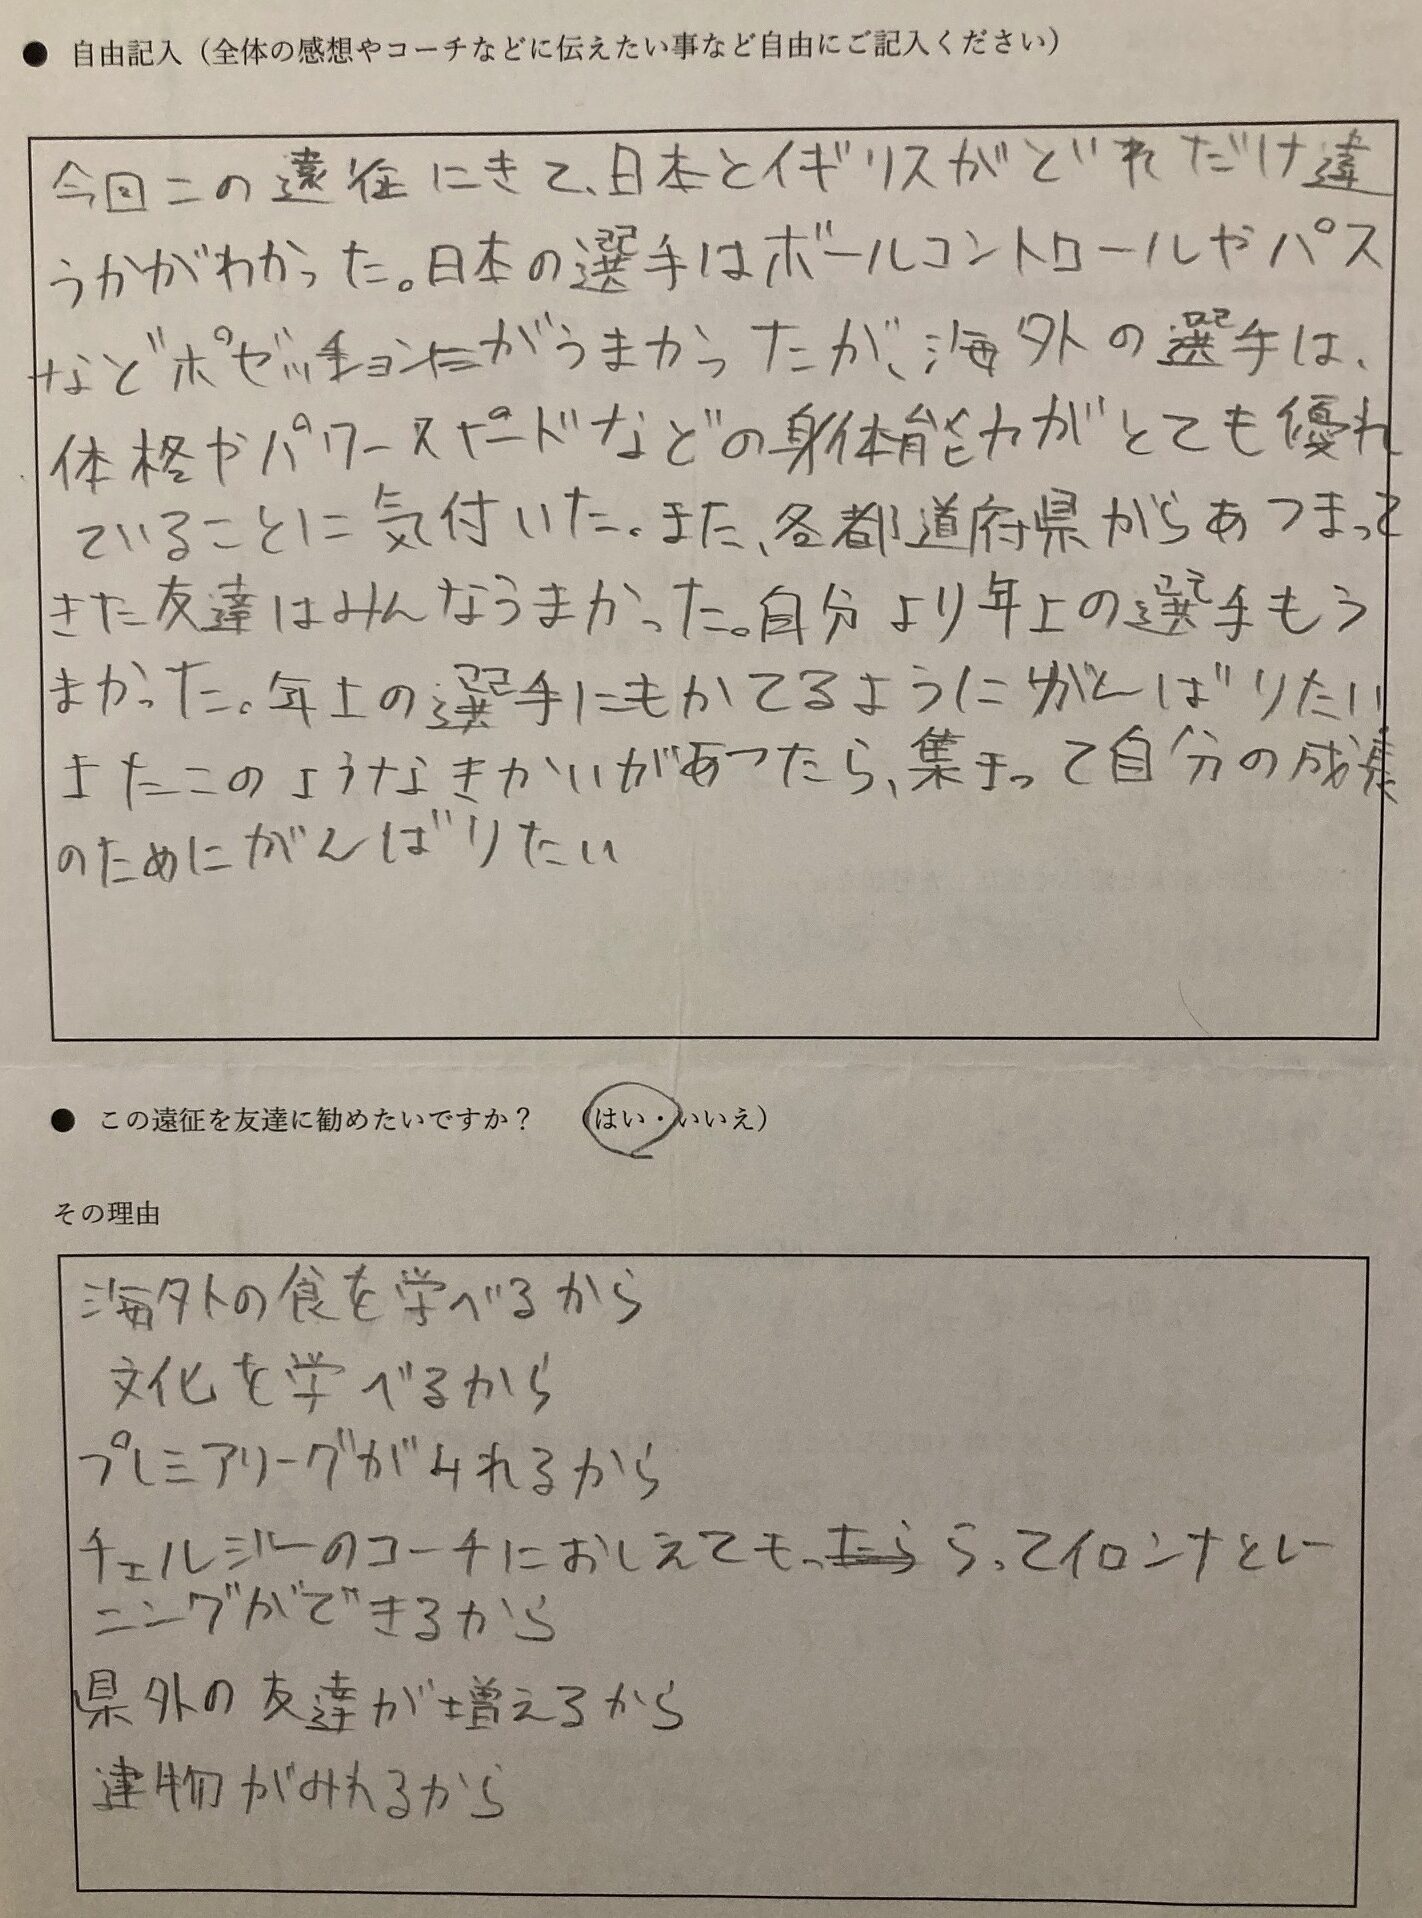 ● 自由記入（全体の感想やコーチなどに伝えたい事など自由にご記入ください）
今回この遠征にきて、日本とイギリスがどれだけ違
うかがわかった。日本の選手はボールコントロールやパス
などポゼッションがうまかったが、海外の選手は、
体格やパワースピードなどの身体能力がとても優れ
ていることに気付いた。また、各都道府県からあつまって
きた友達はみんなうまかった。自分より年上の選手もう
まかった。年上の選手にもかてるようにがんばりたい
またこのようなきかいがあったら、集まって自分の成長
のためにがんばりたい
● この遠征を友達に勧めたいですか？ （はい・いいえ）
その理由
海外の食を学べるから
文化を学べるから
プレミアリーグがみれるから
チェルシーのコーチにおしえてもらってイロンナとレー
ニングができるから
県外の友達が増えるから
建物がみれるから